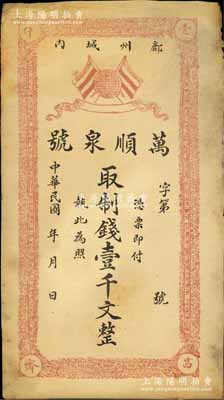 上海陽明拍賣
內城州鄜
號泉順萬
字第 號
憑票即付
取制錢壹千文整
執此為照
中華民國 年 月 日
上海陽明拍賣